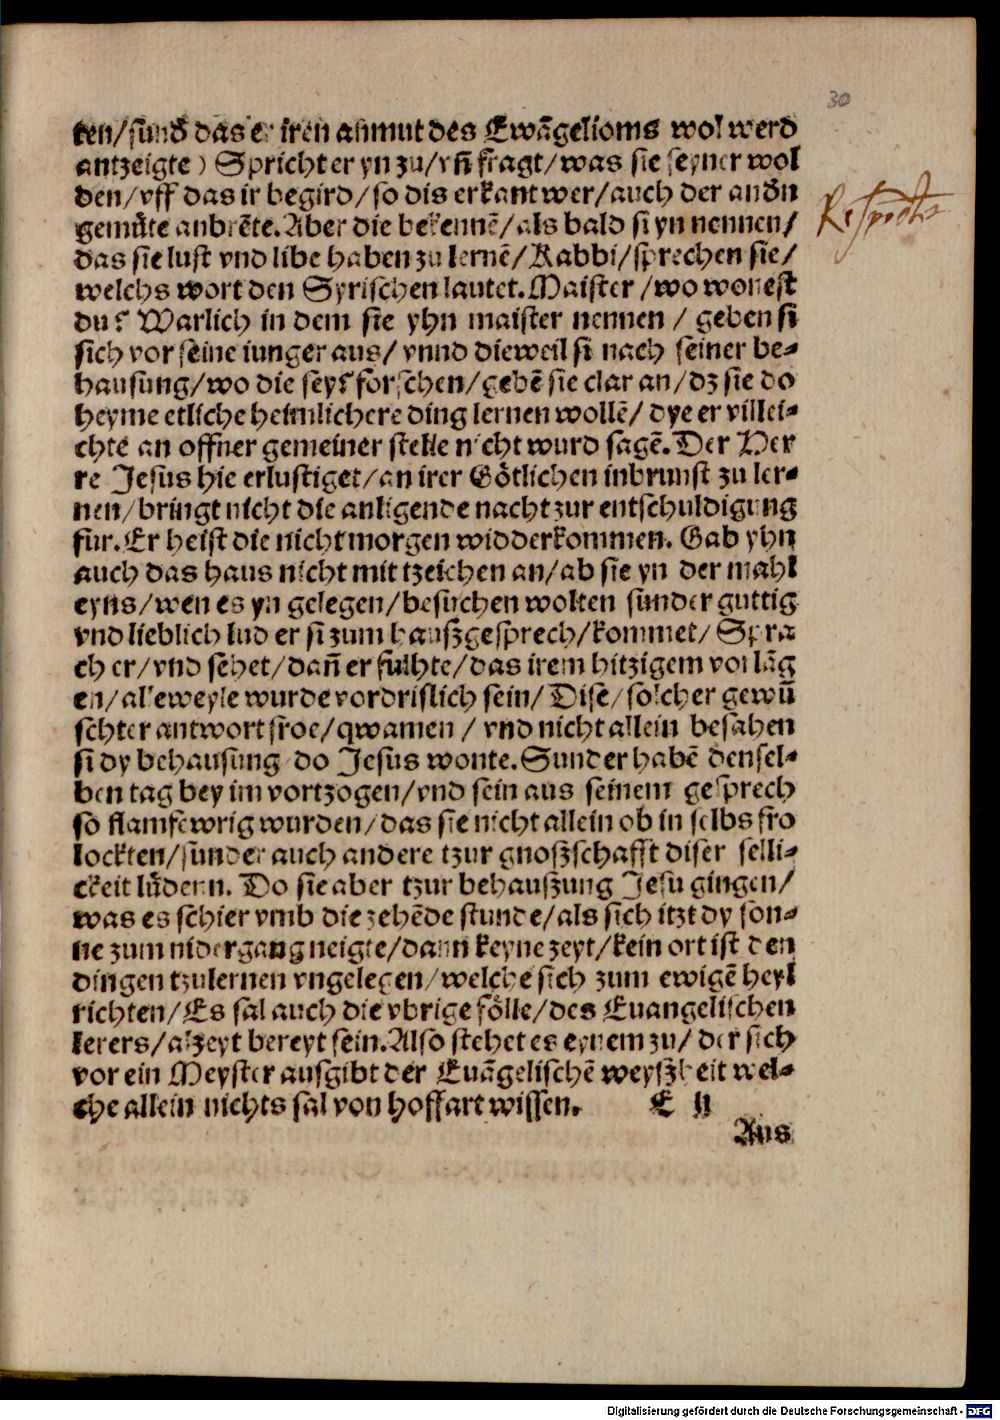 30
ten/sund̄ das er iren anmut des Ewãgelioms wol werd
antzeigte) Spricht er yn zu/vñ fragt/was sie seyner wol
den/vff das ir begird/so dis erkant wer/auch der andn̄
gemůte anbrẽte. Aber die bekennẽ/als bald si yn nennen/
das sie lust vnd libe haben zu lernẽ/Rabbi/sprechen sie/
welchs wort den Syrischen lautet. Maister/wo wonest
du? Warlich in dem sie yhn maister nennen/geben si
sich vor seine iunger aus/vnnd dieweil si nach seiner be-
hausung/wo die sey? forschen/gebẽ sie clar an/dz sie do
heyme etliche heimlichere ding lernen wollẽ/dye er villei-
chte an offner gemeiner stelle nicht wurd sagẽ. Der Her
re Jesus hie erlustiget/an irer Gȯtlichen inbrunst zu ler-
nen/bringt nicht die anligende nacht zur entschuldigung
fur. Er heist die nicht morgen widderkommen. Gab yhn
auch das haus nicht mit tzeichen an/ab sie yn der mahl
eyns/wen es yn gelegen/besuchen wolten sunder guttig
vnd lieblich lud er si zum haußgesprech/kommet/Spra
ch er/vnd sehet/dañ er fulhte/das irem hitzigem vorlãg
en/alleweyle wurde vordrislich sein/Dise/solcher gewũ
schter antwort froe/qwamen/vnd nicht allein besahen
si dy behausung do Jesus wonte. Sunder habẽ densel-
ben tag bey im vortzogen/vnd sein aus seinem gesprech
so flamfewrig wurden/das sie nicht allein ob in selbs fro
lockten/sunder auch andere tzur gnoßschafft diser selli-
ckeit lůdern. Do sie aber tzur behaußung Jesu gingen/
was es schier vmb die zehẽde stunde/als sich itzt dy son-
ne zum nidergang neigte/dann keyne zeyt/kein ort ist den
dingen tzulernen vngelegen/welche sich zum ewigẽ heyl
richten/Es sal auch die vbrige fȯlle/des Euangelischen
lerers/alzeyt bereyt sein. Also stehet es eynem zu/der sich
vor ein Meyster ausgibt der Euãgelischẽ weyßheit wel-
che allein nichts sal von hoffart wissen. E ij
Aus
Digitalisierung gefördert durch die Deutsche Forschungsgemeinschaft - DFG